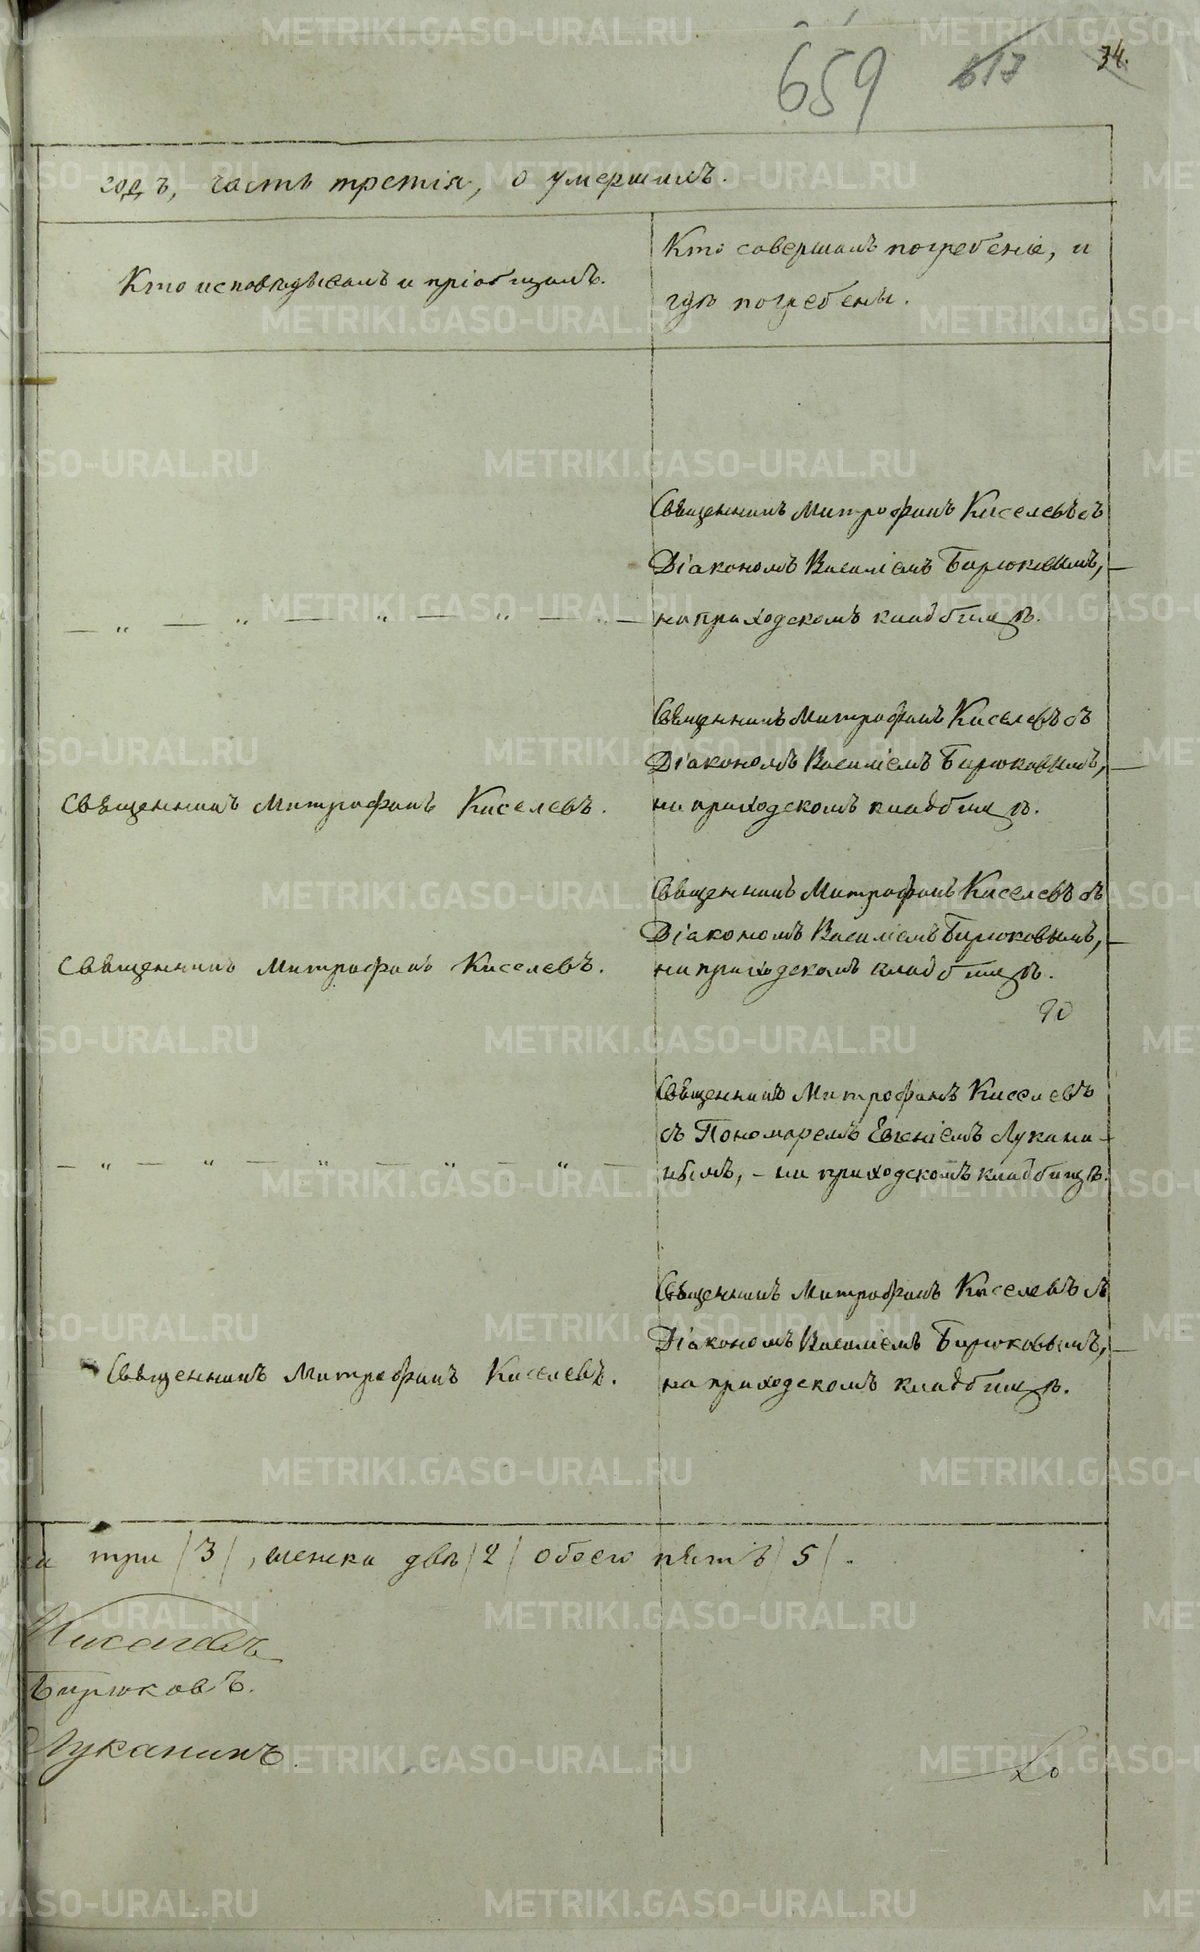 659 617 34.
годъ, часть третія, о умершихъ.
Кто исповѣдывалъ и пріобщалъ.
Кто совершалъ погребеніе, и
гдѣ погребены.
Священникъ Митрофанъ Киселевъ съ
Діакономъ Василіемъ Бирюковымъ, —
на приходскомъ кладбищѣ.
— „ — „ — „ — „ — —
Священникъ Митрофанъ Киселевъ съ
Діакономъ Василіемъ Бирюковымъ, —
на приходскомъ кладбищѣ.
Священникъ Митрофанъ Киселевъ.
Священникъ Митрофанъ Киселевъ съ
Діакономъ Василіемъ Бирюковымъ, —
на приходскомъ кладбищѣ.
Священникъ Митрофанъ Киселевъ.
Священникъ Митрофанъ Киселевъ
съ Пономаремъ Евгеніемъ Лукани-
нымъ, – на приходскомъ кладбищѣ.
— „ — „ — „ — „ — „ —
Священникъ Митрофанъ Киселевъ съ
Діакономъ Василіемъ Бирюковымъ, —
на приходскомъ кладбищѣ.
Священникъ Митрофанъ Киселевъ.
три /3/, женска двѣ /2/ обоего пять /5/.
Киселевъ
Бирюковъ.
Луканинъ.
METRIKI.GASO-URAL.RU